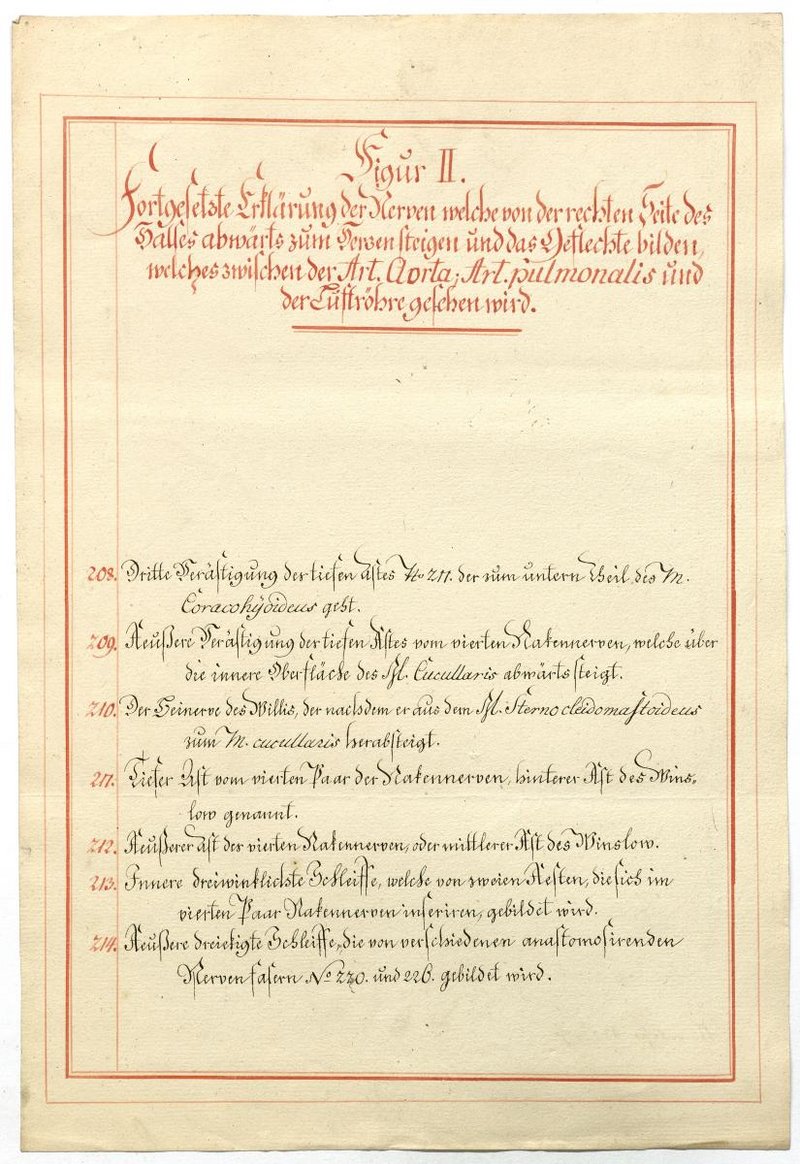 Figur II.
Fortgesetzte Erklärung der Nerven welche von der rechten Seite des
Halses abwärts zum Herzen steigen und das Geflechte bilden,
welches zwischen der Art. Aorta, Art. pulmonalis und
der Luftröhre gesehen wird.
208. Dritte Verästigung der tiefen Astes No 211. der zum untern Theil des M.
Coracohÿoideus geht.
209. Aeußere Verästigung der tiefen Astes vom vierten Nakennerven, welche über
die innere Oberfläche des M. Cucullaris abwärts steigt.
210. Der Beinerve des Willis, der nachdem er aus dem M. Sterno cleidomastoideus
zum M. cucullaris herabsteigt.
211. Tiefer Ast vom vierten Paar der Nakennerven, hinterer Ast des Wins-
low genannt.
212. Aeußerer Ast der vierten Nakennerven, oder mittlerer Ast des Winslow.
213. Innere dreiwinklichte Schleiffe, welche von zweien Aesten, die sich im
vierten Paar Nakennerven inseriren, gebildet wird.
214. Aeußere dreiekigte Schleiffe, die von verschiedenen anastomosirenden
Nervenfasern No 220. und 226. gebildet wird.